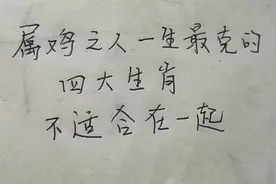 属鸡之人一生最克的
四大生肖
不适合在一起